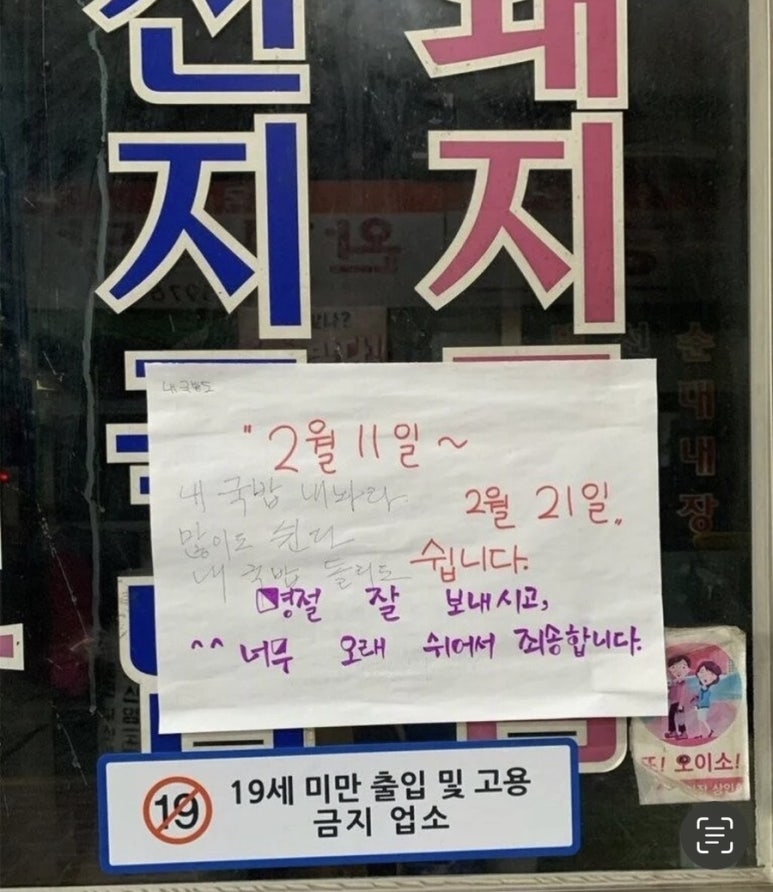 선지
돼지
순대내장
내 국밥도
"2월 11일 ~
2월 21일"
쉽니다.
내 국밥 내놔라
많이도 쉰다
내 국밥 돌리도
명절 잘 보내시고,
^^ 너무 오래 쉬어서 죄송합니다.
또! 오이소!
19
19세 미만 출입 및 고용
금지 업소